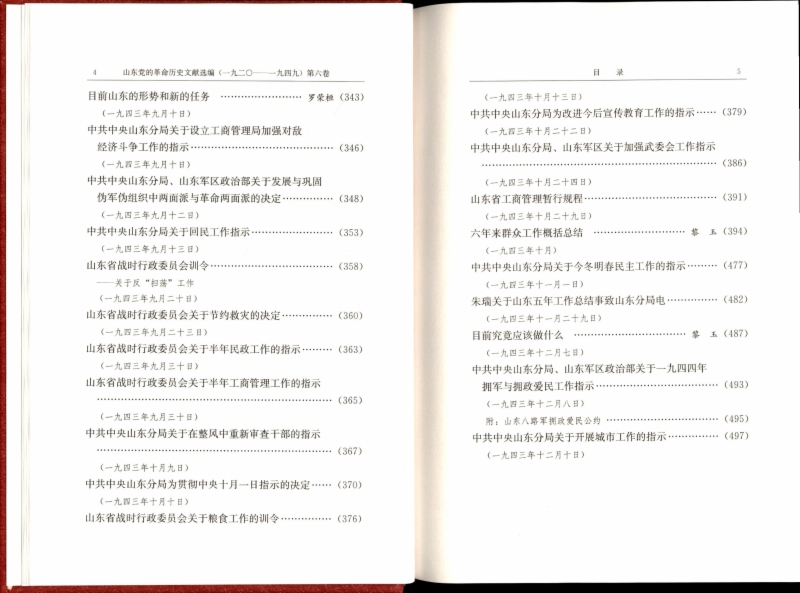 4 山东党的革命历史文献选编(一九二〇——一九四九)第六卷
目前山东的形势和新的任务 ………………………… 罗荣桓(343)
(一九四三年九月十日)
中共中央山东分局关于设立工商管理局加强对敌
经济斗争工作的指示………………………………………(346)
(一九四三年九月十日)
中共中央山东分局、山东军区政治部关于发展与巩固
伪军伪组织中两面派与革命两面派的决定………………(348)
(一九四三年九月十二日)
中共中央山东分局关于回民工作指示……………………(353)
(一九四三年九月)
山东省战时行政委员会训令………………………………(358)
——关于反“扫荡”工作
(一九四三年九月二十日)
山东省战时行政委员会关于节约救灾的决定……………(360)
(一九四三年九月二十三日)
山东省战时行政委员会关于半年民政工作的指示………(363)
(一九四三年九月三十日)
山东省战时行政委员会关于半年工商管理工作的指示
………………………………………………………………(365)
(一九四三年九月三十日)
中共中央山东分局关于在整风中重新审查干部的指示
………………………………………………………………(367)
(一九四三年十月九日)
中共中央山东分局为贯彻中央十月一日指示的决定……(370)
(一九四三年十月十日)
山东省战时行政委员会关于粮食工作的训令……………(376)
目 录 5
(一九四三年十月十三日)
中共中央山东分局为改进今后宣传教育工作的指示……(379)
(一九四三年十月二十二日)
中共中央山东分局、山东军区关于加强武委会工作指示
………………………………………………………………(386)
(一九四三年十月二十四日)
山东省工商管理暂行规程…………………………………(391)
(一九四三年十月二十九日)
六年来群众工作概括总结 ………………………… 黎 玉(394)
(一九四三年十月)
中共中央山东分局关于今冬明春民主工作的指示………(477)
(一九四三年十一月一日)
朱瑞关于山东五年工作总结事致山东分局电……………(482)
(一九四三年十一月二十九日)
目前究竟应该做什么 ……………………………… 黎 玉(487)
(一九四三年十二月七日)
中共中央山东分局、山东军区政治部关于一九四四年
拥军与拥政爱民工作指示…………………………………(493)
(一九四三年十二月八日)
附:山东八路军拥政爱民公约 ……………………………(495)
中共中央山东分局关于开展城市工作的指示……………(497)
(一九四三年十二月十日)